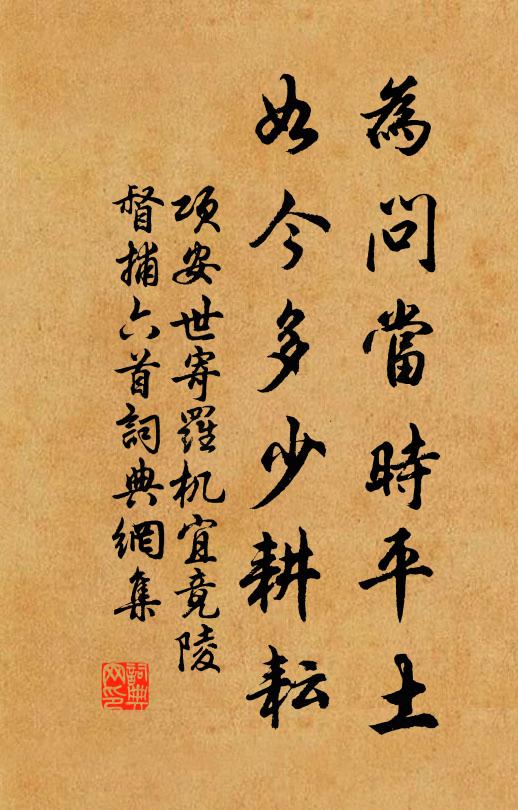 為問當時平土
如今多少耕耘
項安世寄羅机宜竟陵
督捕六首詞典網集
詞典
网印